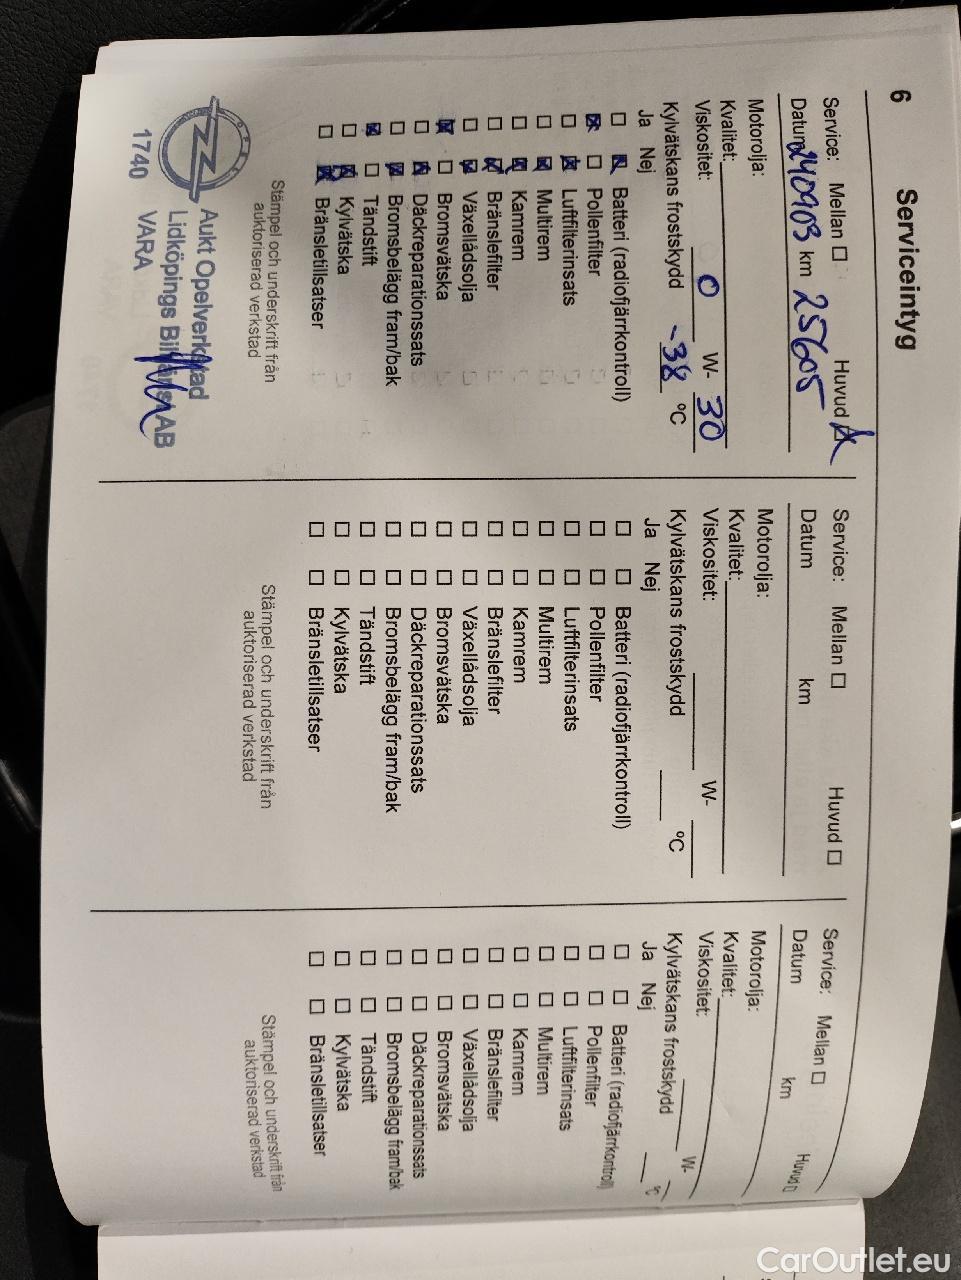 6
Serviceintyg
Service: Mellan ☐ Huvud ☒
Datum 240903 km 25605
Motorolja:
Kvalitet:
Viskositet: 0 W- 30
Kylvätskans frostskydd -38 °C
Ja Nej
☐ ☒ Batteri (radiofjärrkontroll)
☒ ☐ Pollenfilter
☐ ☒ Luftfilterinsats
☐ ☒ Multirem
☐ ☒ Kamrem
☐ ☒ Bränslefilter
☐ ☒ Växellådsolja
☒ ☐ Bromsvätska
☐ ☒ Däckreparationssats
☐ ☒ Bromsbelägg fram/bak
☒ ☐ Tändstift
☐ ☒ Kylvätska
☐ ☒ Bränsletillsatser
Stämpel och underskrift från
auktoriserad verkstad
OPEL
Aukt Opelverkstad
Lidköpings Biltjänst AB
1740 VARA
Service: Mellan ☐ Huvud ☐
Datum km
Motorolja:
Kvalitet:
Viskositet: W-
Kylvätskans frostskydd °C
Ja Nej
☐ ☐ Batteri (radiofjärrkontroll)
☐ ☐ Pollenfilter
☐ ☐ Luftfilterinsats
☐ ☐ Multirem
☐ ☐ Kamrem
☐ ☐ Bränslefilter
☐ ☐ Växellådsolja
☐ ☐ Bromsvätska
☐ ☐ Däckreparationssats
☐ ☐ Bromsbelägg fram/bak
☐ ☐ Tändstift
☐ ☐ Kylvätska
☐ ☐ Bränsletillsatser
Stämpel och underskrift från
auktoriserad verkstad
Service: Mellan ☐ Huvud ☐
Datum km
Motorolja:
Kvalitet:
Viskositet: W-
Kylvätskans frostskydd °C
Ja Nej
☐ ☐ Batteri (radiofjärrkontroll)
☐ ☐ Pollenfilter
☐ ☐ Luftfilterinsats
☐ ☐ Multirem
☐ ☐ Kamrem
☐ ☐ Bränslefilter
☐ ☐ Växellådsolja
☐ ☐ Bromsvätska
☐ ☐ Däckreparationssats
☐ ☐ Bromsbelägg fram/bak
☐ ☐ Tändstift
☐ ☐ Kylvätska
☐ ☐ Bränsletillsatser
Stämpel och underskrift från
auktoriserad verkstad
CarOutlet.eu